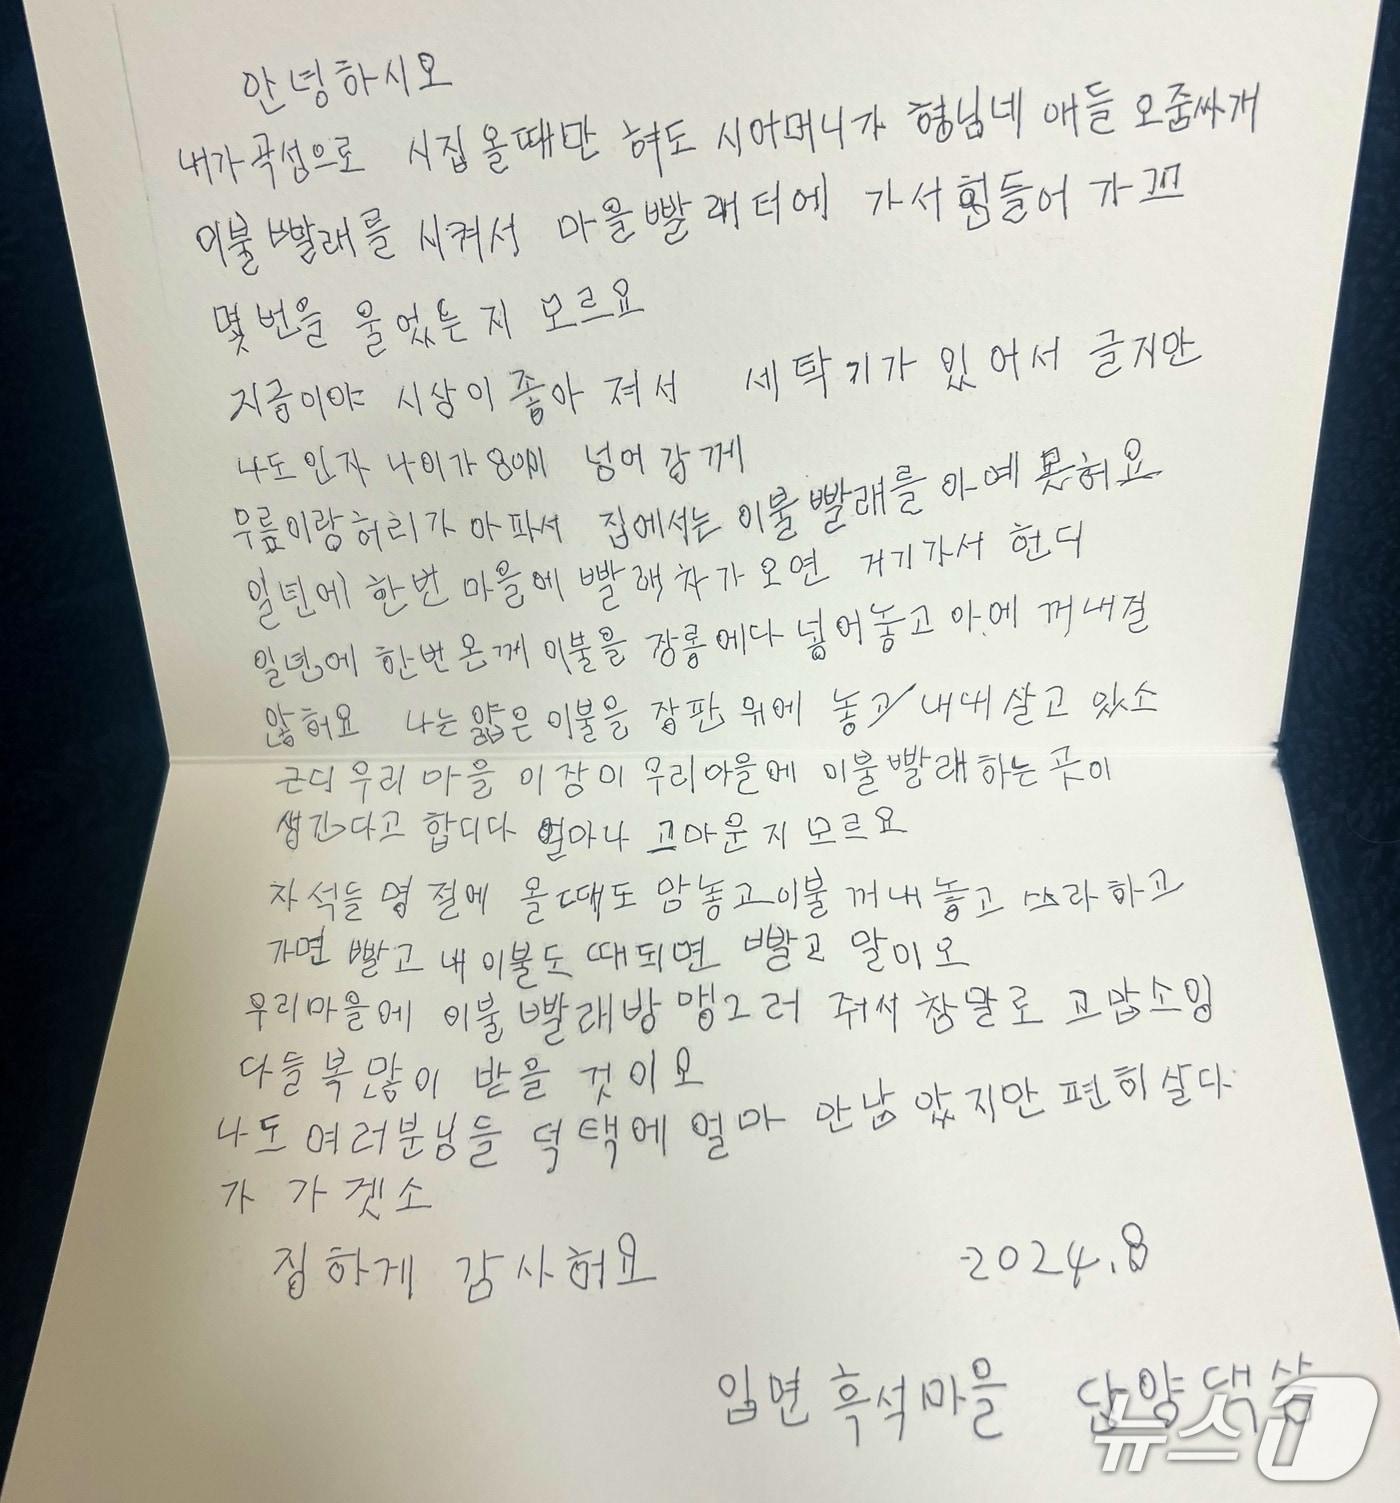 안녕하시오
내가 곡성으로 시집 올때만 혀도 시어머니가 형님네 애들 오줌싸개
이불 빨래를 시켜서 마을빨래터에 가서 힘들어 가꼬
몇번을 울었는지 모르요
지금이야 시상이 좋아 져서 세탁기가 있어서 글지만
나도 인자 나이가 80이 넘어 감께
무릎이랑 허리가 아파서 집에서는 이불빨래를 아예 못허요
일년에 한번 마을에 빨래차가 오면 거기가서 헌디
일년에 한번 온께 이불을 장롱에다 넣어놓고 아에 꺼내질
않허요 나는 얇은 이불을 장판 위에 놓고 내내 살고 있소
근디 우리 마을 이장이 우리마을에 이불빨래하는 곳이
생긴다고 합디다 얼마나 고마운지 모르요
자석들 명절에 올때도 암놓고 이불 꺼내놓고 쓰라하고
가면 빨고 내 이불도 때되면 빨고 말이오
우리마을에 이불빨래방 맹그러 줘서 참말로 고맙소잉
다들 복 많이 받을 것이오
나도 여러분님들 덕택에 얼마 안남았지만 편히 살다
가 가겟소
짐하게 감사허요 2024.8
입면 흑석마을 단양댁
뉴스1